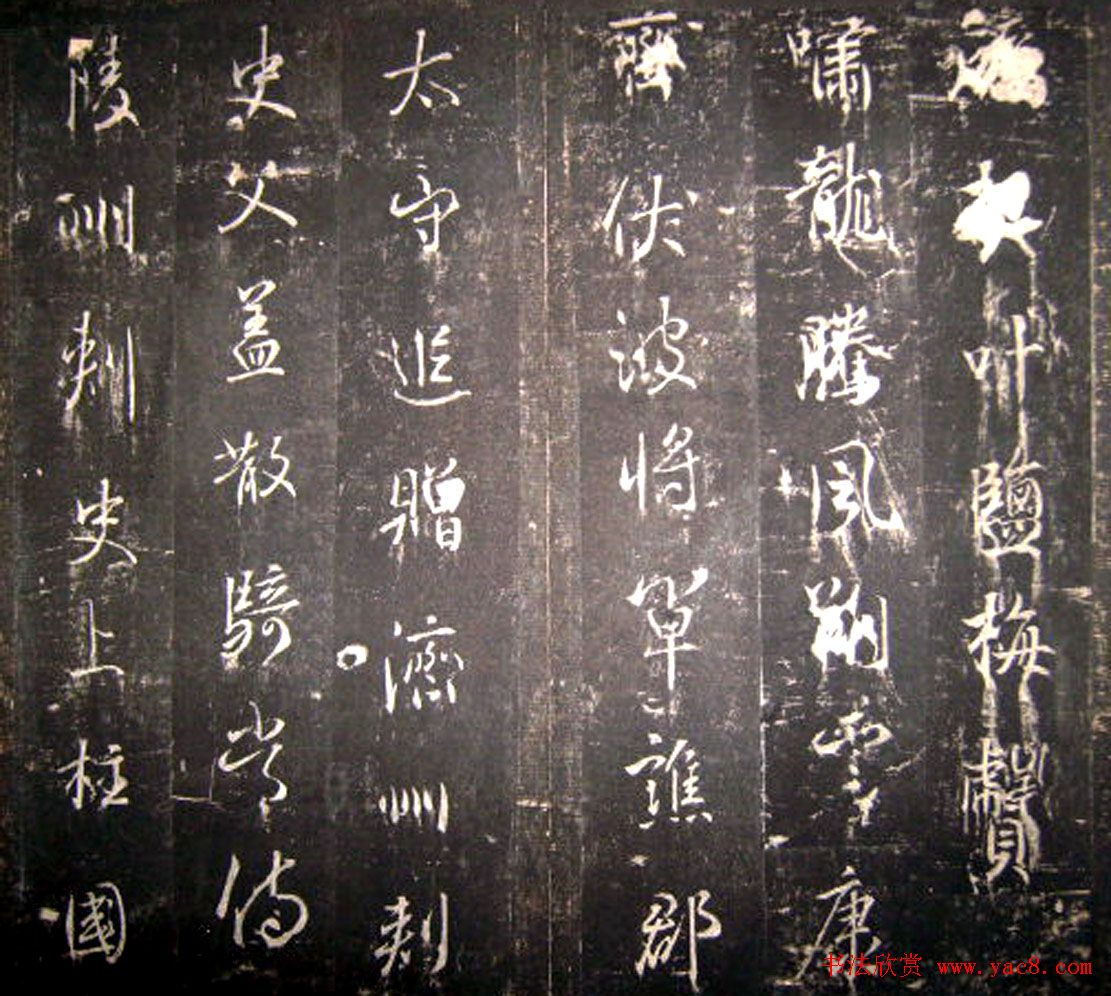 契叶鹽梅
嘯龍騰風翔雲康
齊伏波將軍譙郡
太守追贈濟州刺
史父蓋散騎常侍
陵州刺史上柱國
书法欣赏 www.yac8.com